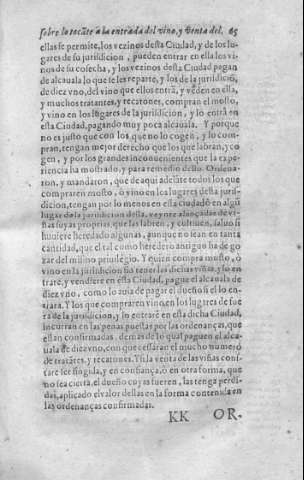 sobre lo tocãte a la entrada del vino, y venta del. 65
ellas se permite, los vezinos desta Ciudad, y de los lu-
gares de su juridicion, pueden entrar en ella los vi-
nos de su cosecha, y los vezinos desta Ciudad pagan
de alcauala lo que se les reparte, y los de la juridiciõ,
de diez vno, del vino que ellos entrã, y vẽden en ella,
y muchos tratantes, y recatones, compran el mosto,
y vino en los lugares de la juridicion, y lo entrã en
esta Ciudad, pagando muy poca alcauala. Y porque
no es justo que con los que no lo cogen, y lo com-
pran, tengan mejor derecho que los que labran, y co-
gen, y por los grandes inconuenientes que la expe-
riencia ha mostrado, y para remedio dello. Ordena-
ron, y mandaron, que de aqui adelãte todos los que
compraren mosto, ò vino en los lugares desta juris-
dicion, tengan por lo menos en esta ciudad ò en algũ
lugar de la jurisdicion della, veynte alançadas de vi-
ñas suyas proprias, que las labren, y cultiuen, saluo si
huuiere heredado algunas, aunque no sean en tanta
cantidad, que el tal como heredero antiguo ha de go-
zar del mismo priuilegio. Y quien compra mosto, ò
vino en la jurisdicion sin tener las dichas viñas, y lo en
trare, y vendiere en esta Ciudad, pague el alcauala de
diez vno, como lo auia de pagar el dueño si el lo en-
trara. Y los que compraren vino en los lugares de fue
ra de la jurisdicion, y lo entraré en esta dicha Ciudad,
incurran en las penas puestas por las ordenanças, que
estan confirmadas, demas de lo qual paguen el alca-
uala de diez vno, con que cessaràn el mucho numero
de tratãtes, y recatones. Y si la venta de las viñas cons-
tare ser fingida, y en confiança, ò en otra forma, que
no sea cierta, el dueño cuyas fueren, las tenga perdi-
das, aplicado el valor dellas en la forma contenida en
las ordenanças confirmadas.
KK OR-